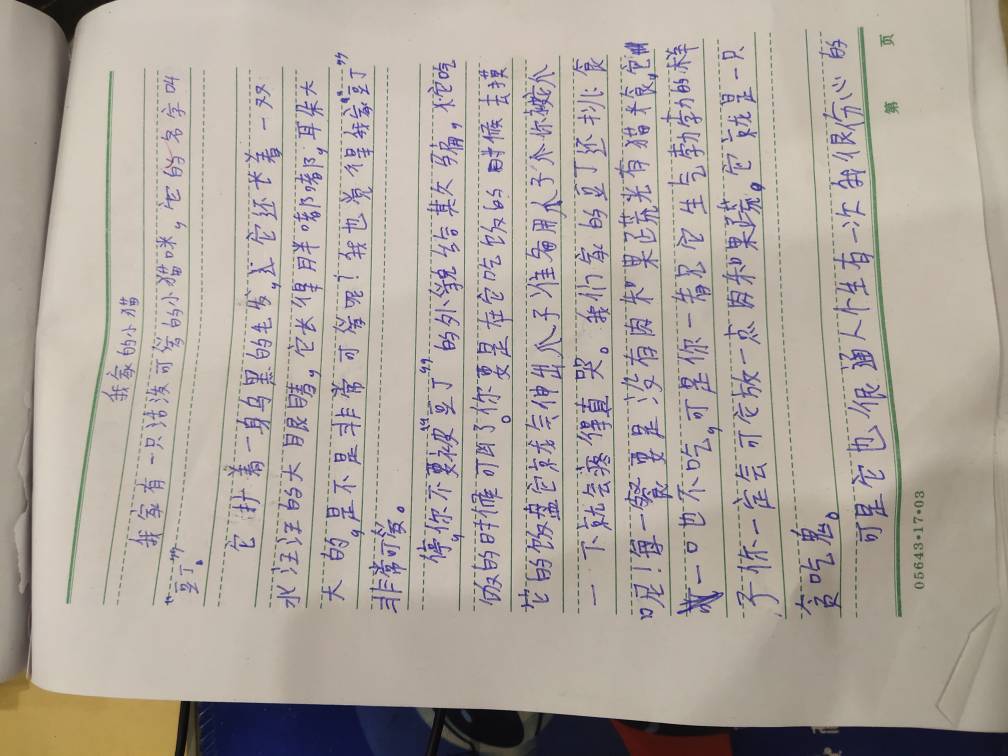 我家的小猫
我家有一只活泼可爱的小猫咪,它的名字叫
“豆丁”。
它 扑着一身乌黑的毛发,它还长着一双
水汪汪的大眼睛,它长得胖嘟嘟,耳朵大
大的,是不是非常可爱呢!我也觉得我家“豆丁”
非常可爱。
停,你不要被“豆丁”的外貌给其欠骗,它吃
饭的时候可凶了。你要是在它吃饭的时候去摸
它的饭盘它就会伸出爪子准备用爪子个你挠
一下就会疼得直哭。我们家的豆丁还扑食
呢!每一餐要是没有肉和果蔬光有猫粮,它
一口也不吃,可是你一看见它生气勃勃的样
子你一定会可它放一点肉和果蔬。它就是一只
贪吃鬼。
可是它也很通人个生有一次我很伤心的
05643·17·03
第 页